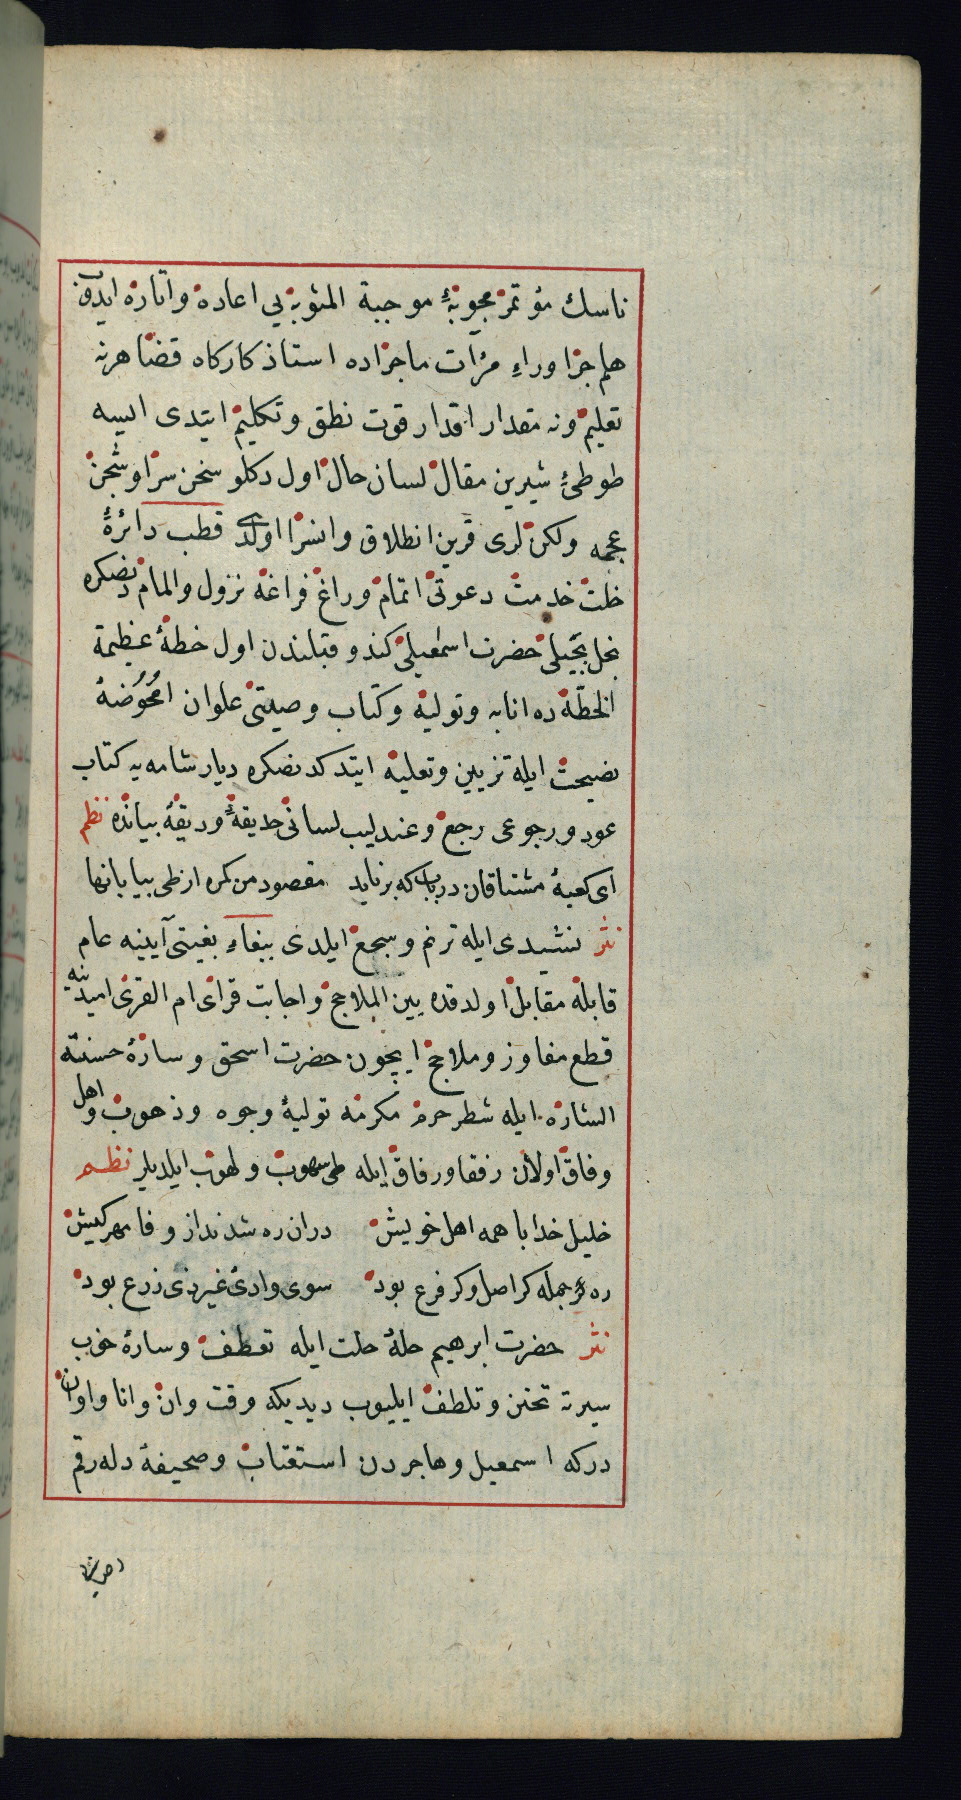 ناسك مؤتمر مجوبهٔ موجبة المثوبه يی اعاده واناره ايدوب
هاجرا وراء مرآت ماجراده استاذ كاركاه قضا هرنه
تعليم ونه مقدار اقدار قوت نطق وتكليم ايتدی ايسه
طوطئ شيرين مقال لسان حال اول دكلو سخن سرا وشجن
عجمه ولكن لری قرين انطلاق وانسرا اولدی قطب دائرهٔ
خلت خدمت دعوتی اتمام وراغ فراغه نزول والمام دنصكره
نجل بجيلی حضرت اسمعيلی كندو قبلندن اول خطهٔ عظيمة
الخطه ده انابه وتوليه وكتاب وصيتی علوان امحوضهٔ
نصيحت ايله تزيين وتعليه ايتدكدنصكره ديار شامه يه كتاب
عود ورجوعی رجع وعندليب لسانی حديقهٔ وديقهٔ بيانده نظم
ای كعبهٔ مشتاقان درياب كه برنايد مقصود من كمره از طی بيابانها
نثر نشيدی ايله ترنم وسجع ايلدی ببغاء بغيتی آيينه عام
قابله مقابل اولدقده بين الملاحج واجابت قرای ام القری اميدنيه
قطع مفاوز وملاحج ايچون حضرت اسحق وسارهٔ حسنة
الشاره ايله شطر حرم مكرمه توليهٔ وجوه وذهوب واهل
وفاق اولان رفقا ورفاق ايله طی سهوب ولهوب ايلديلر نظم
خليل خدا با همه اهل خويش دران ره شدند از وفا مهركيش
ره جمله كر اصل وكر فرع بود سوی وادی غير ذی زرع بود
نثر حضرت ابرهيم حلهٔ حلت ايله تعطف وسارهٔ خوب
سيرته تحنن وتلطف ايليوب ديديكه وقت وان وانا واوان
دركه اسمعيل وهاجردن استعتاب وصحيفهٔ دله رقم